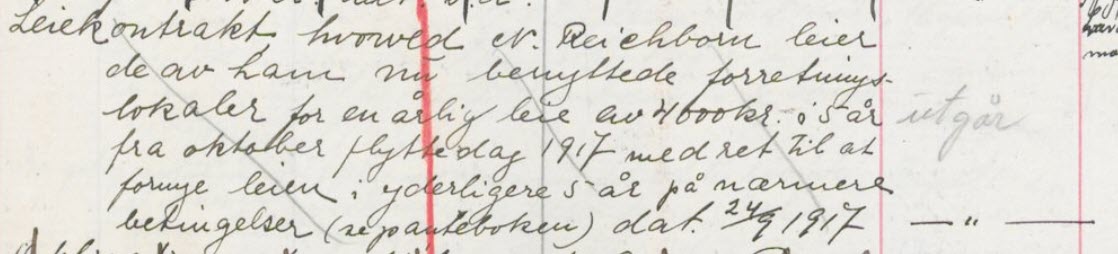 Leiekontrakt hvorved N. Reichborn leier
de av ham nu benyttede forretnings-
lokaler for en årlig leie av 4000 kr. i 5 år utgår
fra oktober flyttedag 1917 med ret til at
fornye leien i yderligere 5 år på nærmere
betingelser (se panteboken) dat. 24/9 1917 — " —